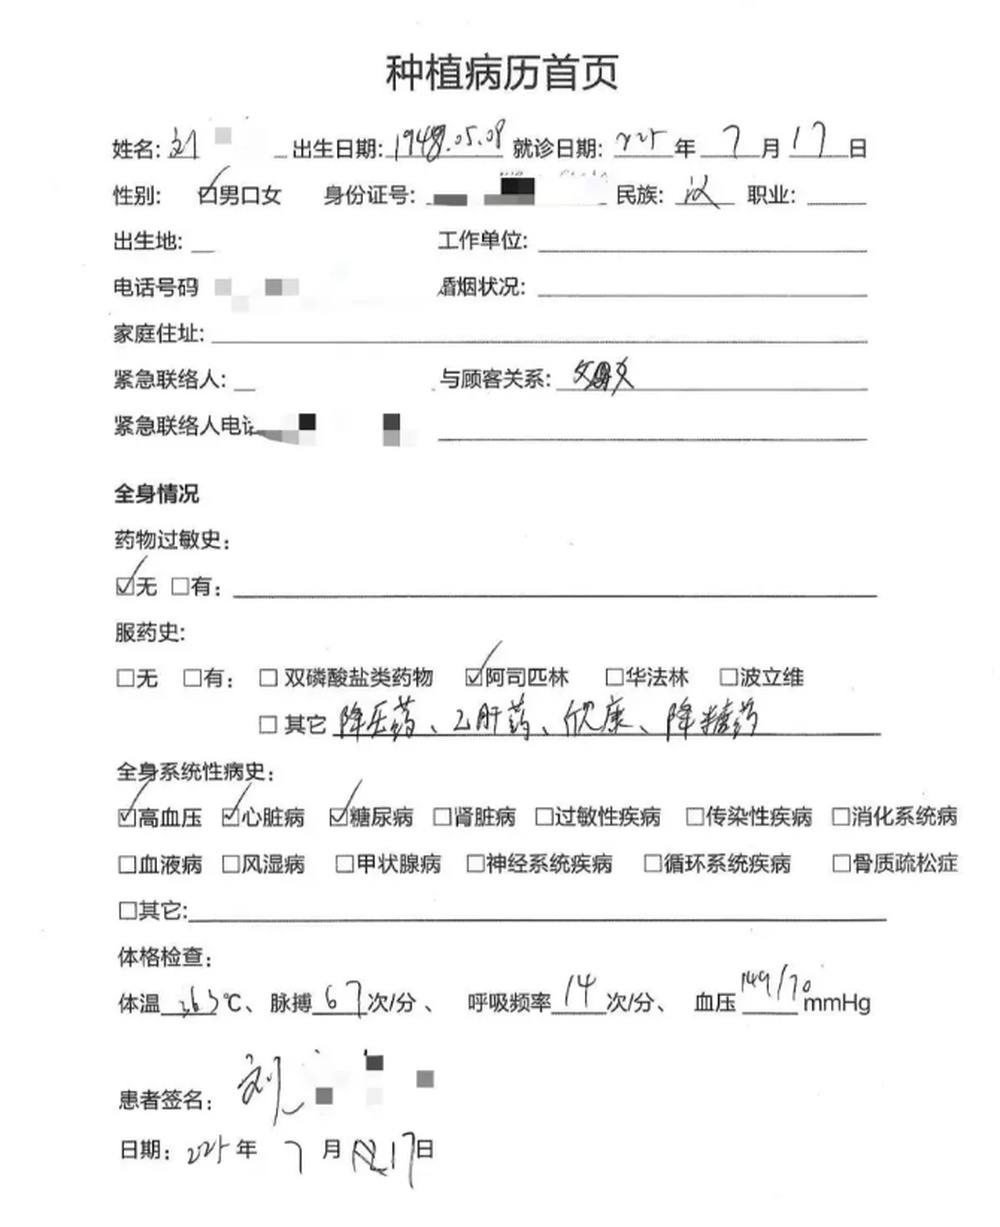 种植病历首页
姓名:刘 出生日期:1948.05.08 就诊日期: 2025 年 7 月 17 日
性别: ☑男口女 身份证号: 民族: 汉 职业:
出生地: 工作单位:
电话号码 婚烟状况:
家庭住址:
紧急联络人: 与顾客关系:
紧急联络人电话
全身情况
药物过敏史:
☑无 □有:
服药史:
□无 □有: □ 双磷酸盐类药物 ☑阿司匹林 □华法林 □波立维
□ 其它 降压药、乙肝药、欣康、降糖药
全身系统性病史:
☑高血压 ☑心脏病 ☑糖尿病 □肾脏病 □过敏性疾病 □传染性疾病 □消化系统病
□血液病 □风湿病 □甲状腺病 □神经系统疾病 □循环系统疾病 □骨质疏松症
□其它:
体格检查:
体温 36.5 ℃、 脉搏 67 次/分 、 呼吸频率 14 次/分、 血压 149/70 mmHg
患者签名: 刘
日期: 2025 年 7 月 17日